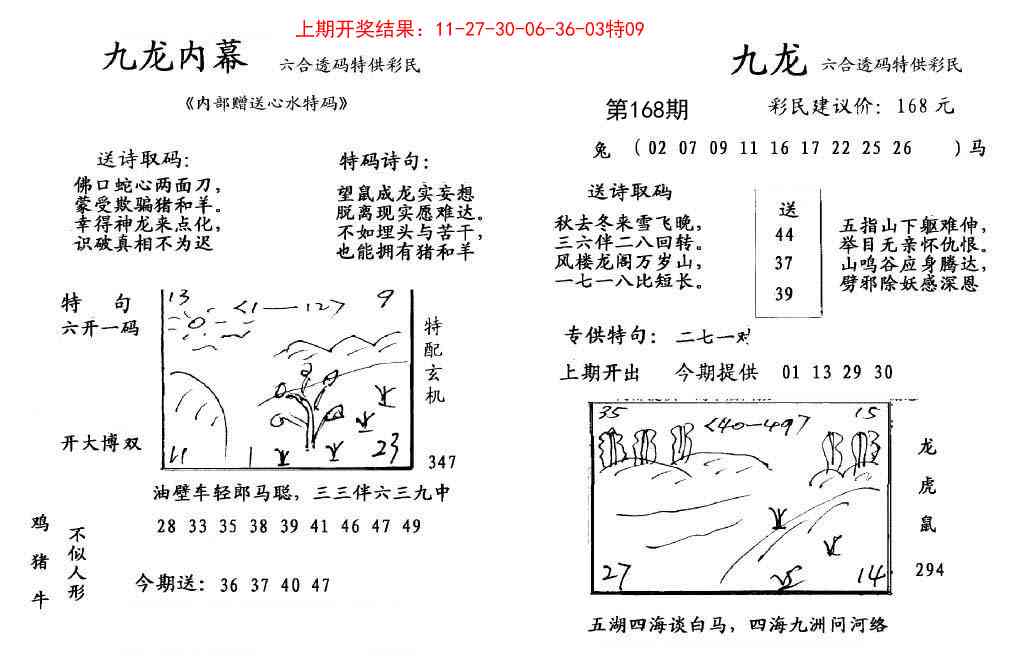 上期开奖结果：11-27-30-06-36-03特09
九龙内幕 六合透码特供彩民
《内部赠送心水特码》
送诗取码：
佛口蛇心两面刀，
蒙受欺骗猪和羊。
幸得神龙来点化，
识破真相不为迟
特码诗句：
望鼠成龙实妄想
脱离现实愿难达。
不如埋头与苦干，
也能拥有猪和羊
特 句
六开一码
开大博双
13
9
<1—12>
11
1
23
特配玄机
347
油壁车轻郎马聪，三三伴六三九中
28 33 35 38 39 41 46 47 49
鸡猪牛
不似人形
今期送：36 37 40 47
九龙 六合透码特供彩民
第168期
彩民建议价：168元
兔 （02 07 09 11 16 17 22 25 26 ）马
送诗取码
秋去冬来雪飞晚，
三六伴二八回转。
风楼龙阁万岁山，
一七一八比短长。
送
44
37
39
五指山下躯难伸，
举目无亲怀仇恨。
山鸣谷应身腾达，
劈邪除妖感深恩
专供特句：二七一对
上期开出 今期提供 01 13 29 30
35
<40-49>
15
27
14
龙虎鼠
294
五湖四海谈白马，四海九洲问河络